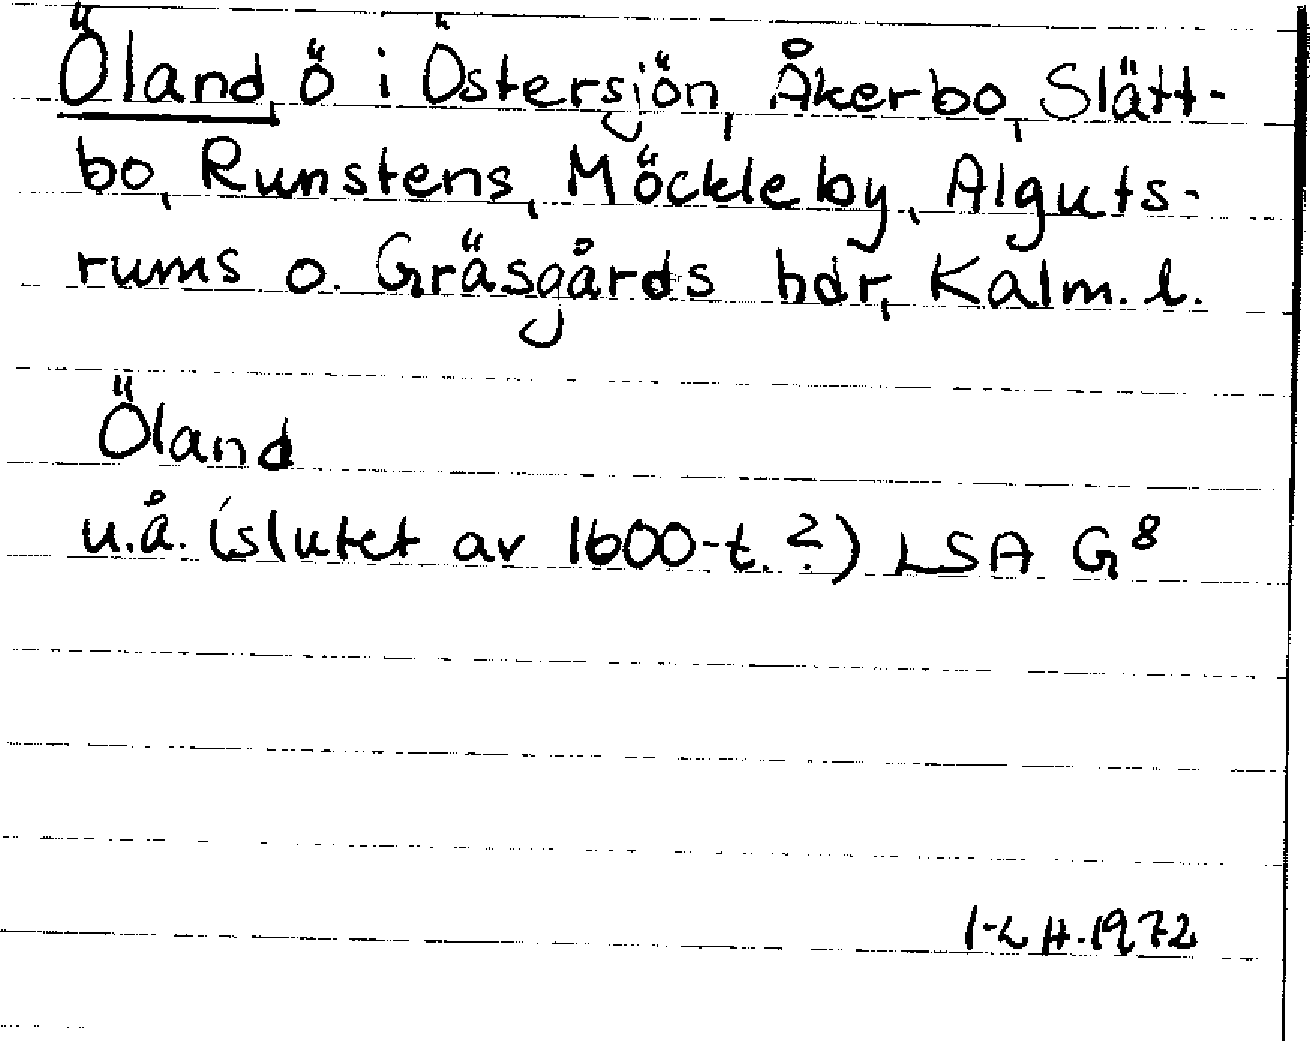 Öland, ö i Östersjön, Åkerbo, Slätt-
bo, Runstens, Möckleby, Alguts-
rums o. Gräsgårds hdr, Kalm. l.
Öland
u.å. (slutet av 1600-t.?) LSA G⁸
H. 1972